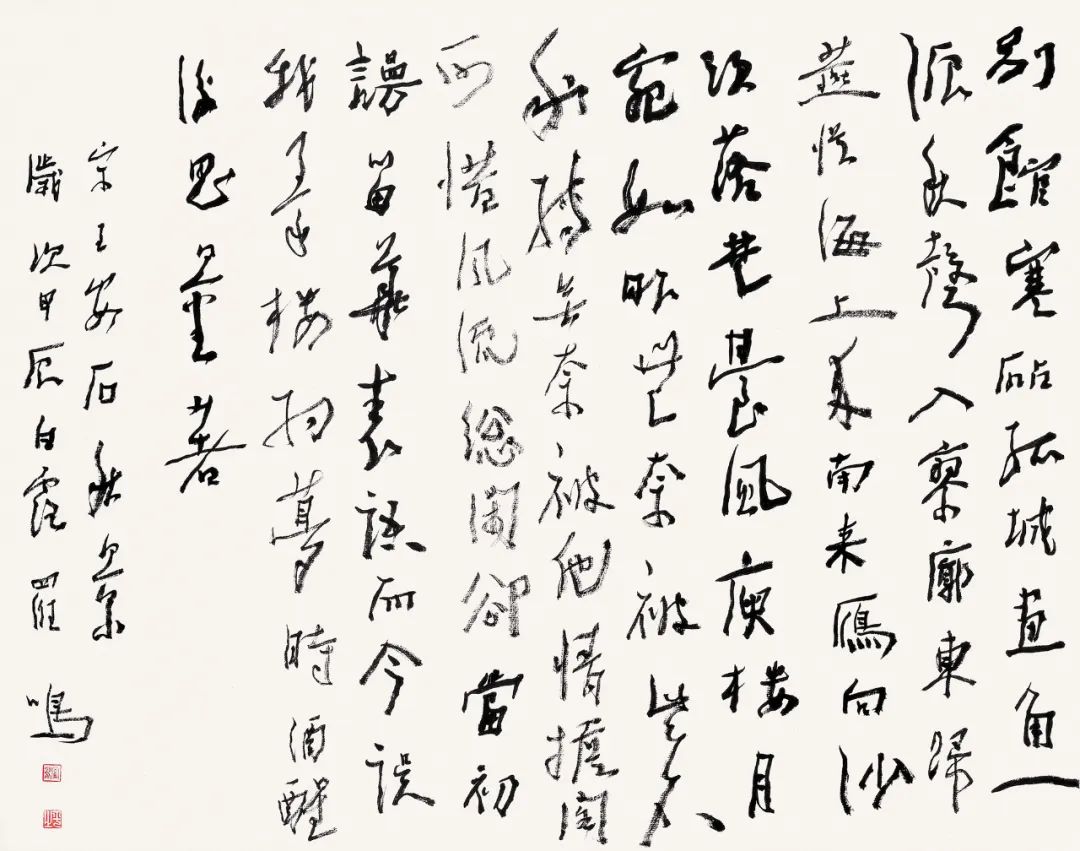 別館寒砧孤城畫角一
派秋聲入寥廓東歸
燕從海上去南来鴈向沙
頭落楚臺風庾楼月
宛如昨無奈被些名
利縛無奈被他情擔閣
可惜風流總闲卻當初
謾留華表語而今误
我秦楼約夢時酒醒
後思量著
宋王安石秋景
歲次甲辰白露羅鳴